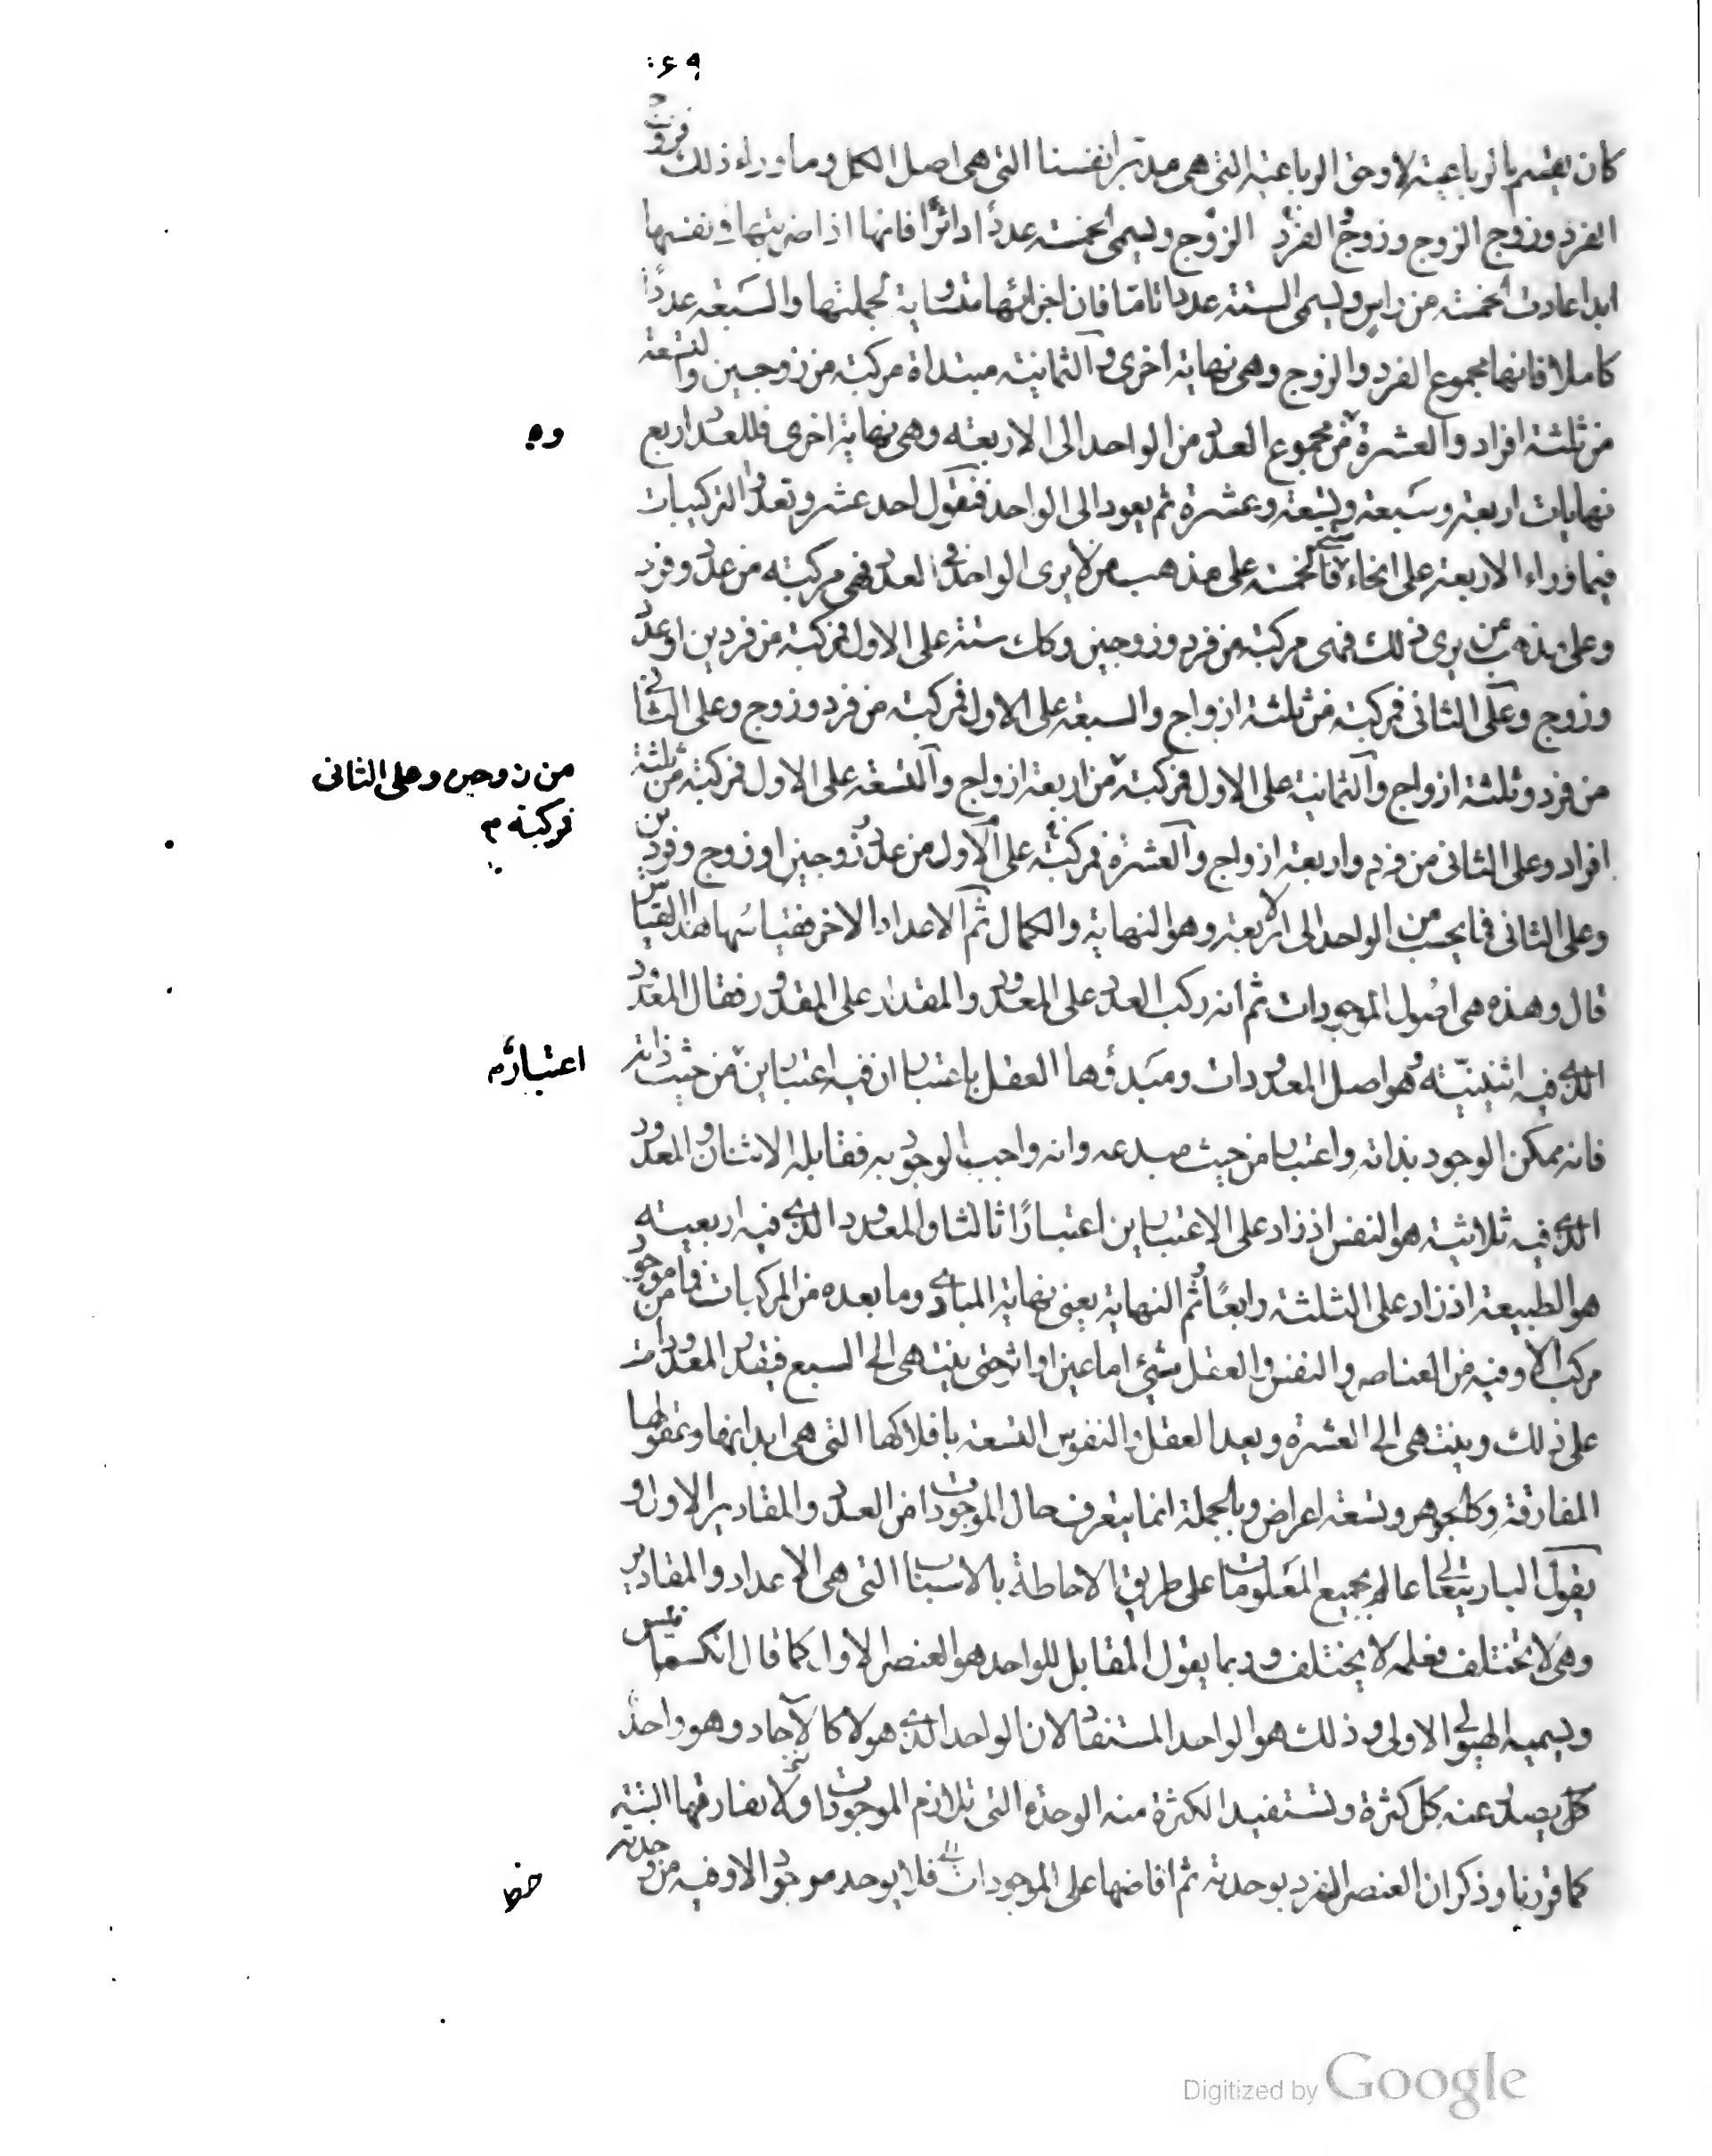 ٤٩
كان يقسم بالرباعية لا وحق الرباعية التى هى مدبر انفسنا التى هى اصل الكل وما وراء ذلك فزوج
الفرد وزوج الزوج وزوج الفرد الزوج ويسمى الخمسة عددا دائرًا فانها اذا ضربتها فى نفسها
ابدا عادت الخمسة من راس ويسمى الستة عددا تاما فان اجزائها متساوية لجملتها والسبعة عددًا
كاملا فانها مجموع الفرد والزوج وهى نهاية اخرى والثمانية مبتداة مركبة من زوجين والتسعة
من ثلثة افراد والعشرة من مجموع العدد من الواحد الى الاربعة وهى نهاية اخرى فللعدد اربع
نهايات اربعة وسبعة وتسعة وعشرة ثم يعود الى الواحد فنقول احد عشر وتعدد التركيبات
فيما وراء الاربعة على انحاء شتى فالخمسة على مذهب من لا يرى الواحد فى العدد فهى مركبة من عدد وفرد
وعلى مذهب من يرى ذلك فهى مركبة من فرد وزوجين وكك ستة على الاول فمركبة من فردين او عدد
وزوج وعلى الثانى فمركبة من ثلثة ازواج والسبعة على الاول فمركبة من فرد وزوج وعلى الثانى
من فرد وثلثة ازواج والثمانية على الاول فمركبة من اربعة ازواج والتسعة على الاول فمركبة من ثلثة
من زوجين وعلى الثانى
فمركبة م
افراد وعلى الثانى من فرد واربعة ازواج والعشرة فمركبة على الاول من عدد زوجين او زوج وفردين
وعلى الثانى فما يحسب من الواحد الى الاربعة وهو النهاية والكمال ثم الاعداد الاخر فقياسها هذا القياس
قال وهذه هى اصول الموجودات ثم انه ركب العدد على المعدود والمقدار على المقدور فقال المعدود
الذى فيه اثنينيّة هو اصل المعدودات ومبدؤها العقل باعتبار ان فيه اعتبارين من حيث ذاته
اعتبارم
فانه ممكن الوجود بذاته واعتبار من حيث مبدعه وانه واجب الوجود به فقابله الاثنان والمعدود
الذى فيه ثلاثية هو النفس اذ زاد على الاعتبارين اعتبارًا ثالثا والمعدود الذى فيه اربعية
هو الطبيعة اذ زاد على الثلثة رابعًا ثم النهاية يعنى نهاية المبادى وما بعده من المركبات فما من موجود
مركب الا وفيه من العناصر والنفس والعقل شئ اما عين او اثر حتى ينتهى الى السبع فيقدر المعدودات
على ذلك وينتهى الى العشرة ويعد العقل والنفوس التسعة بافلاكها التى هى ابدانها وعقولها
المفارقة وكالجوهر وتسعة اعراض وبالجملة انما يتعرف حال الموجودات من العدد والمقادير الاول و
يقول البارى تعالى عالم بجميع المعلومات على طريق الاحاطة بالاسباب التى هى الاعداد والمقادير
وهى لا تختلف فعلمه لا يختلف وربما يقول المقابل للواحد هو العنصر الاول كما قال انكسمانيس
ويسميه الهيولى الاولى وذلك هو الواحد المستفاد لان الواحد الذى هو لا كالآحاد وهو واحد
كل يصدر عنه كل كثرة وتستفيد الكثرة منه الوحدة التى تلازم الموجودات ولا تفارقها البتة
كما قررنا وذكر ان العنصر انفرد بوحدته ثم افاضها على الموجودات فلا يوجد موجود الا وفيه من وحدته
حظ